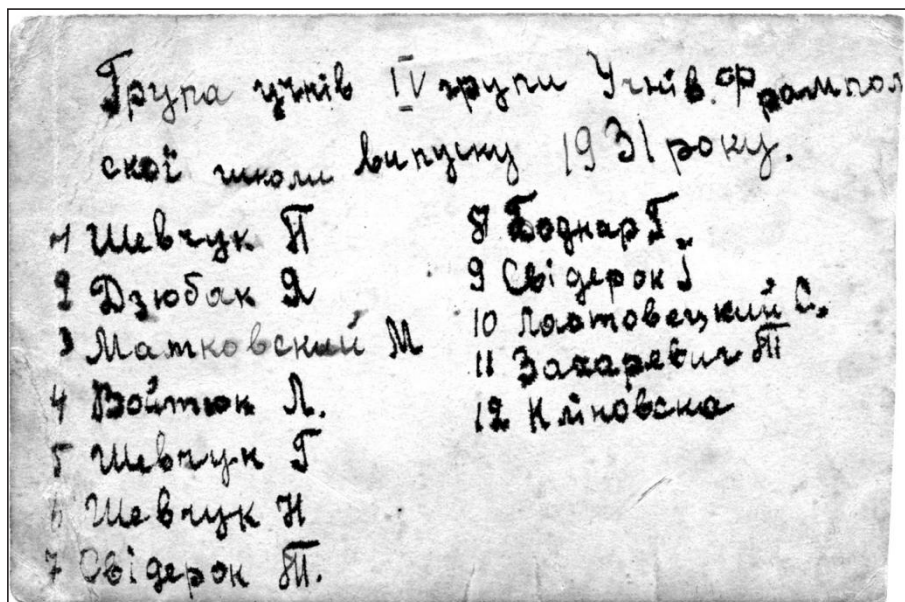 Група учнів IV групи Учнів. Фрампол
скої школи випуску 1931 року.
1 Шевчук П
2 Дзюбак Я
3 Матковский М
4 Войтюк Л.
5 Шевчук Г
6 Шевчук Н
7 Свідерок Т.
8 Боднар Г.
9 Свідерок І
10 Ластовецкий С.
11 Захаревич Т
12 Кліновска